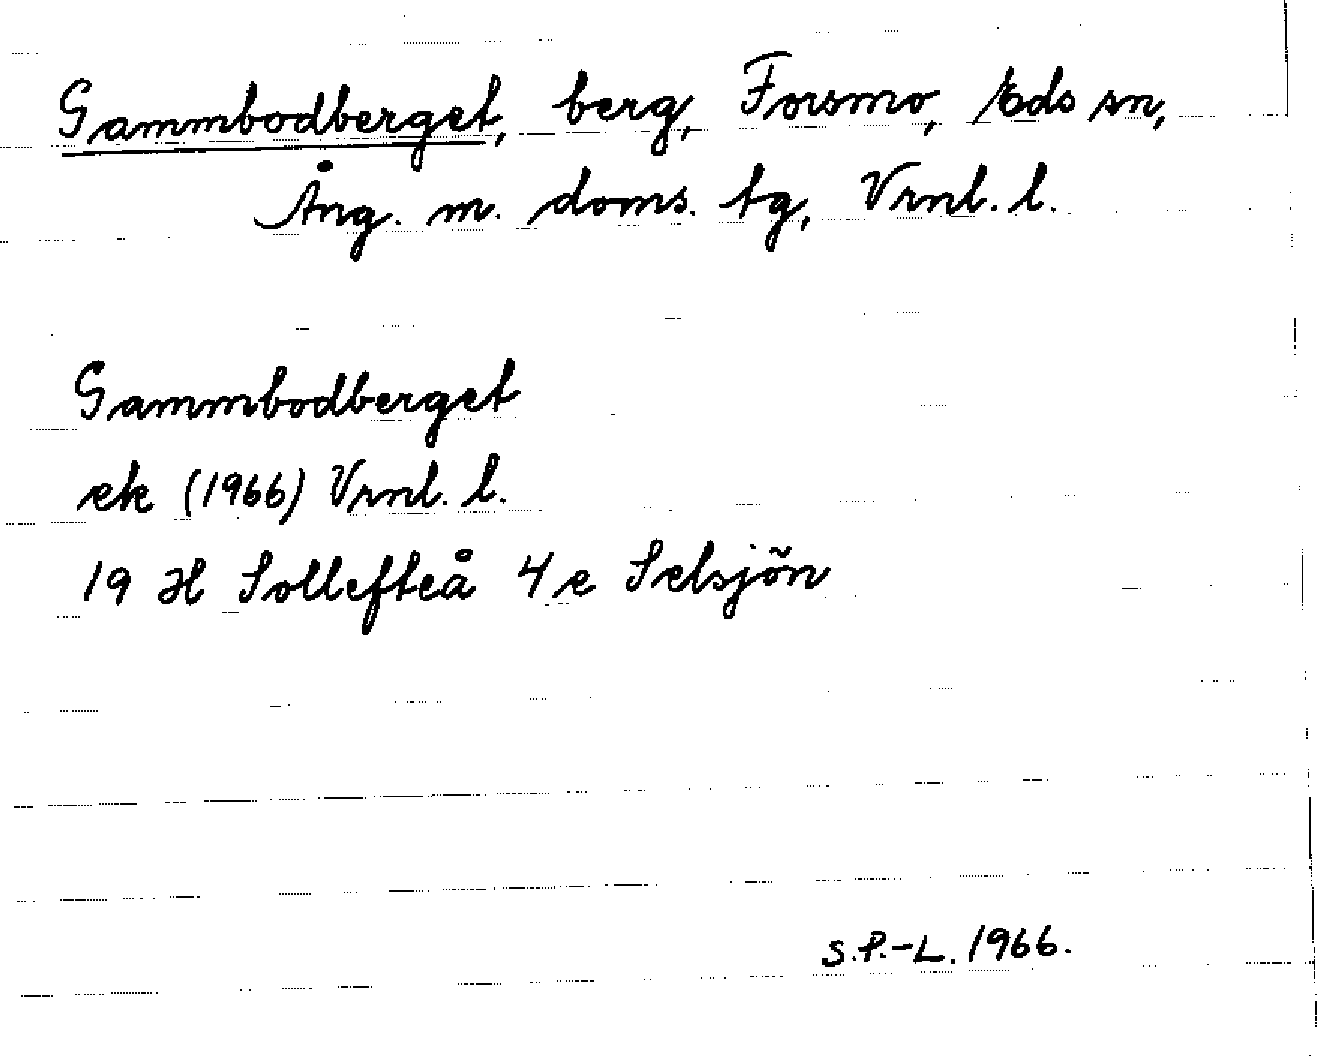 Gammbodberget, berg, Forsmo, Eds sn,
Ång. m. doms. tg, Vrnl. l.
Gammbodberget
ek (1966) Vrnl. l.
19 H Sollefteå 4e Selsjön
S.P.-L. 1966.